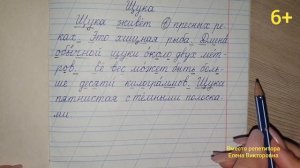 Щука
Щука живёт в пресных ре-
ках. Это хищная рыба. Длина
обычной щуки около двух мет-
ров. Её вес может быть боль-
ше десяти килограммов. Щука
пятнистая с тёмными полоска-
ми.
6+
Вместо репетитора
Елена Викторовна